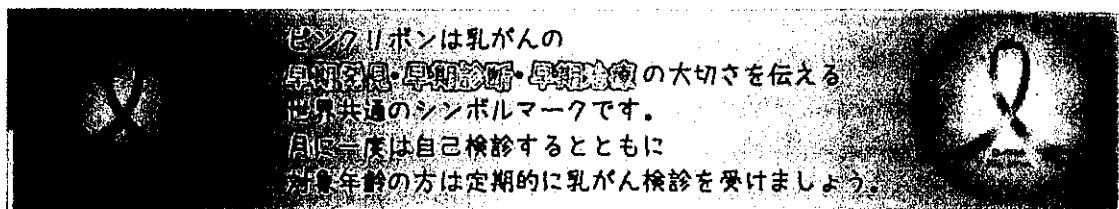 ピンクリボンは乳がんの
早期発見・早期診断・早期治療の大切さを伝える
世界共通のシンボルマークです。
月に一度は自己検診するとともに
対象年齢の方は定期的に乳がん検診を受けましょう。